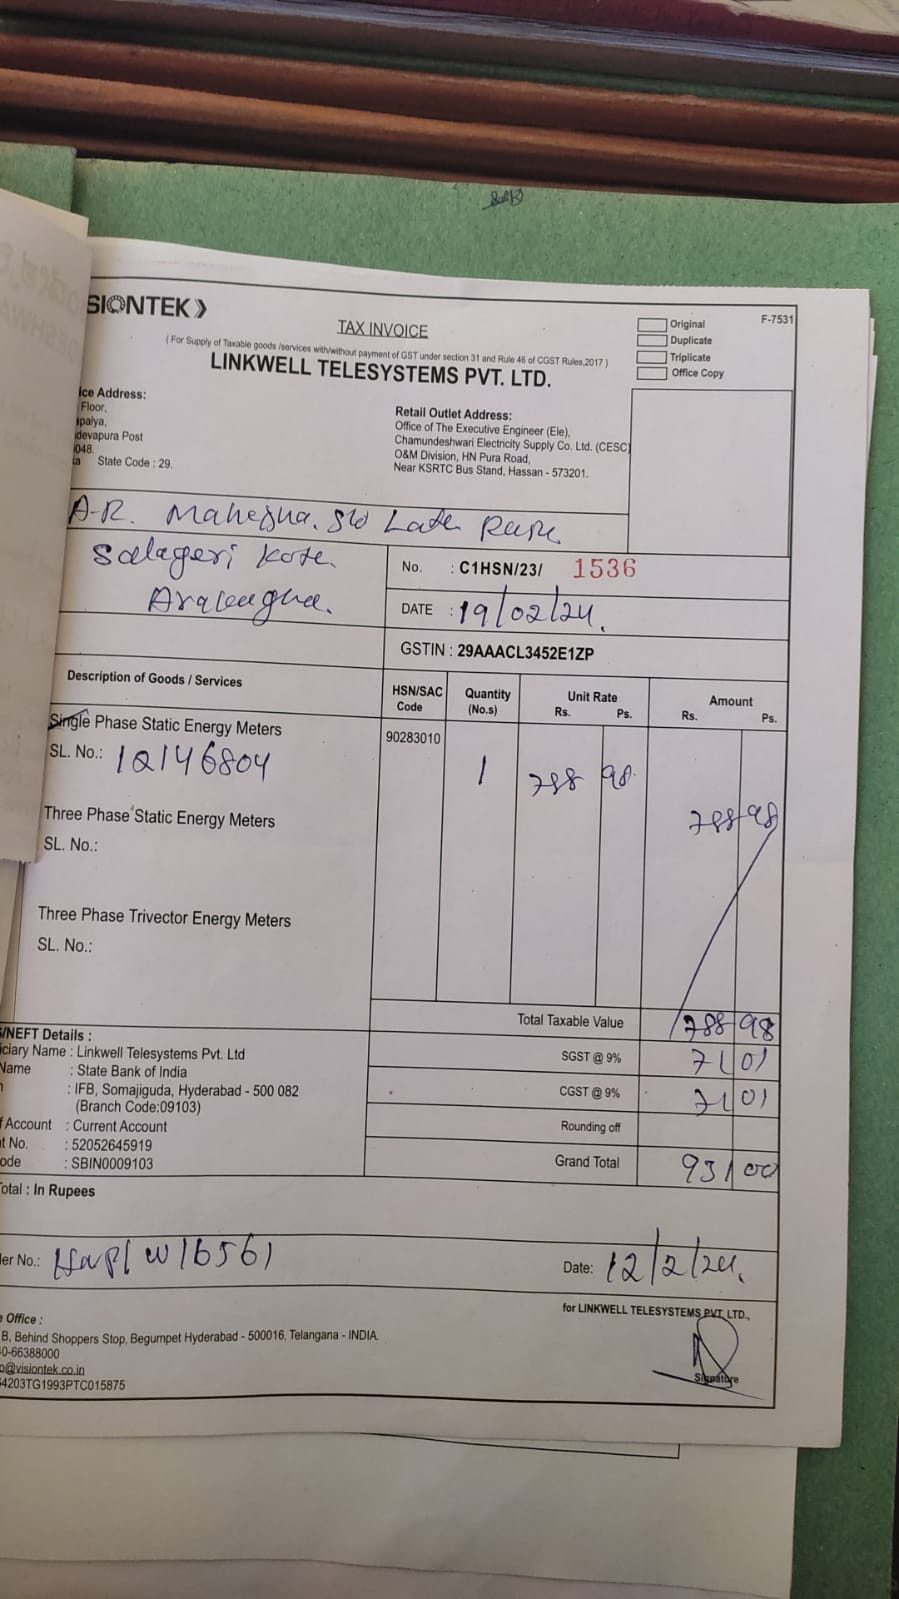 SIONTEK
TAX INVOICE
( For Supply of Taxable goods /services with/without payment of GST under section 31 and Rule 46 of CGST Rules,2017 )
LINKWELL TELESYSTEMS PVT. LTD.
F-7531
Original
Duplicate
Triplicate
Office Copy
ice Address:
Floor,
apalya,
devapura Post
048.
a State Code : 29.
Retail Outlet Address:
Office of The Executive Engineer (Ele),
Chamundeshwari Electricity Supply Co. Ltd. (CESC)
O&M Division, HN Pura Road,
Near KSRTC Bus Stand, Hassan - 573201.
A-R. Mahesha. S/o Late
Salageri Kote
No. : C1HSN/23/ 1536
DATE : 19/02/24.
GSTIN : 29AAACL3452E1ZP
Description of Goods / Services HSN/SAC Code Quantity (No.s) Unit Rate Rs. Ps. Amount Rs. Ps.
Single Phase Static Energy Meters 90283010
SL. No.: 12146804 1 788 98 788 98
Three Phase Static Energy Meters
SL. No.:
Three Phase Trivector Energy Meters
SL. No.:
Total Taxable Value 788 98
SGST @ 9% 71 01
CGST @ 9% 71 01
Rounding off
Grand Total 931 00
/NEFT Details :
ciary Name : Linkwell Telesystems Pvt. Ltd
Name : State Bank of India
: IFB, Somajiguda, Hyderabad - 500 082
(Branch Code:09103)
f Account : Current Account
t No. : 52052645919
ode : SBIN0009103
otal : In Rupees
er No.: 16561
Date: 12/2/24.
for LINKWELL TELESYSTEMS PVT. LTD.,
Signature
e Office :
B, Behind Shoppers Stop, Begumpet Hyderabad - 500016, Telangana - INDIA.
0-66388000
o@visiontek.co.in
4203TG1993PTC015875